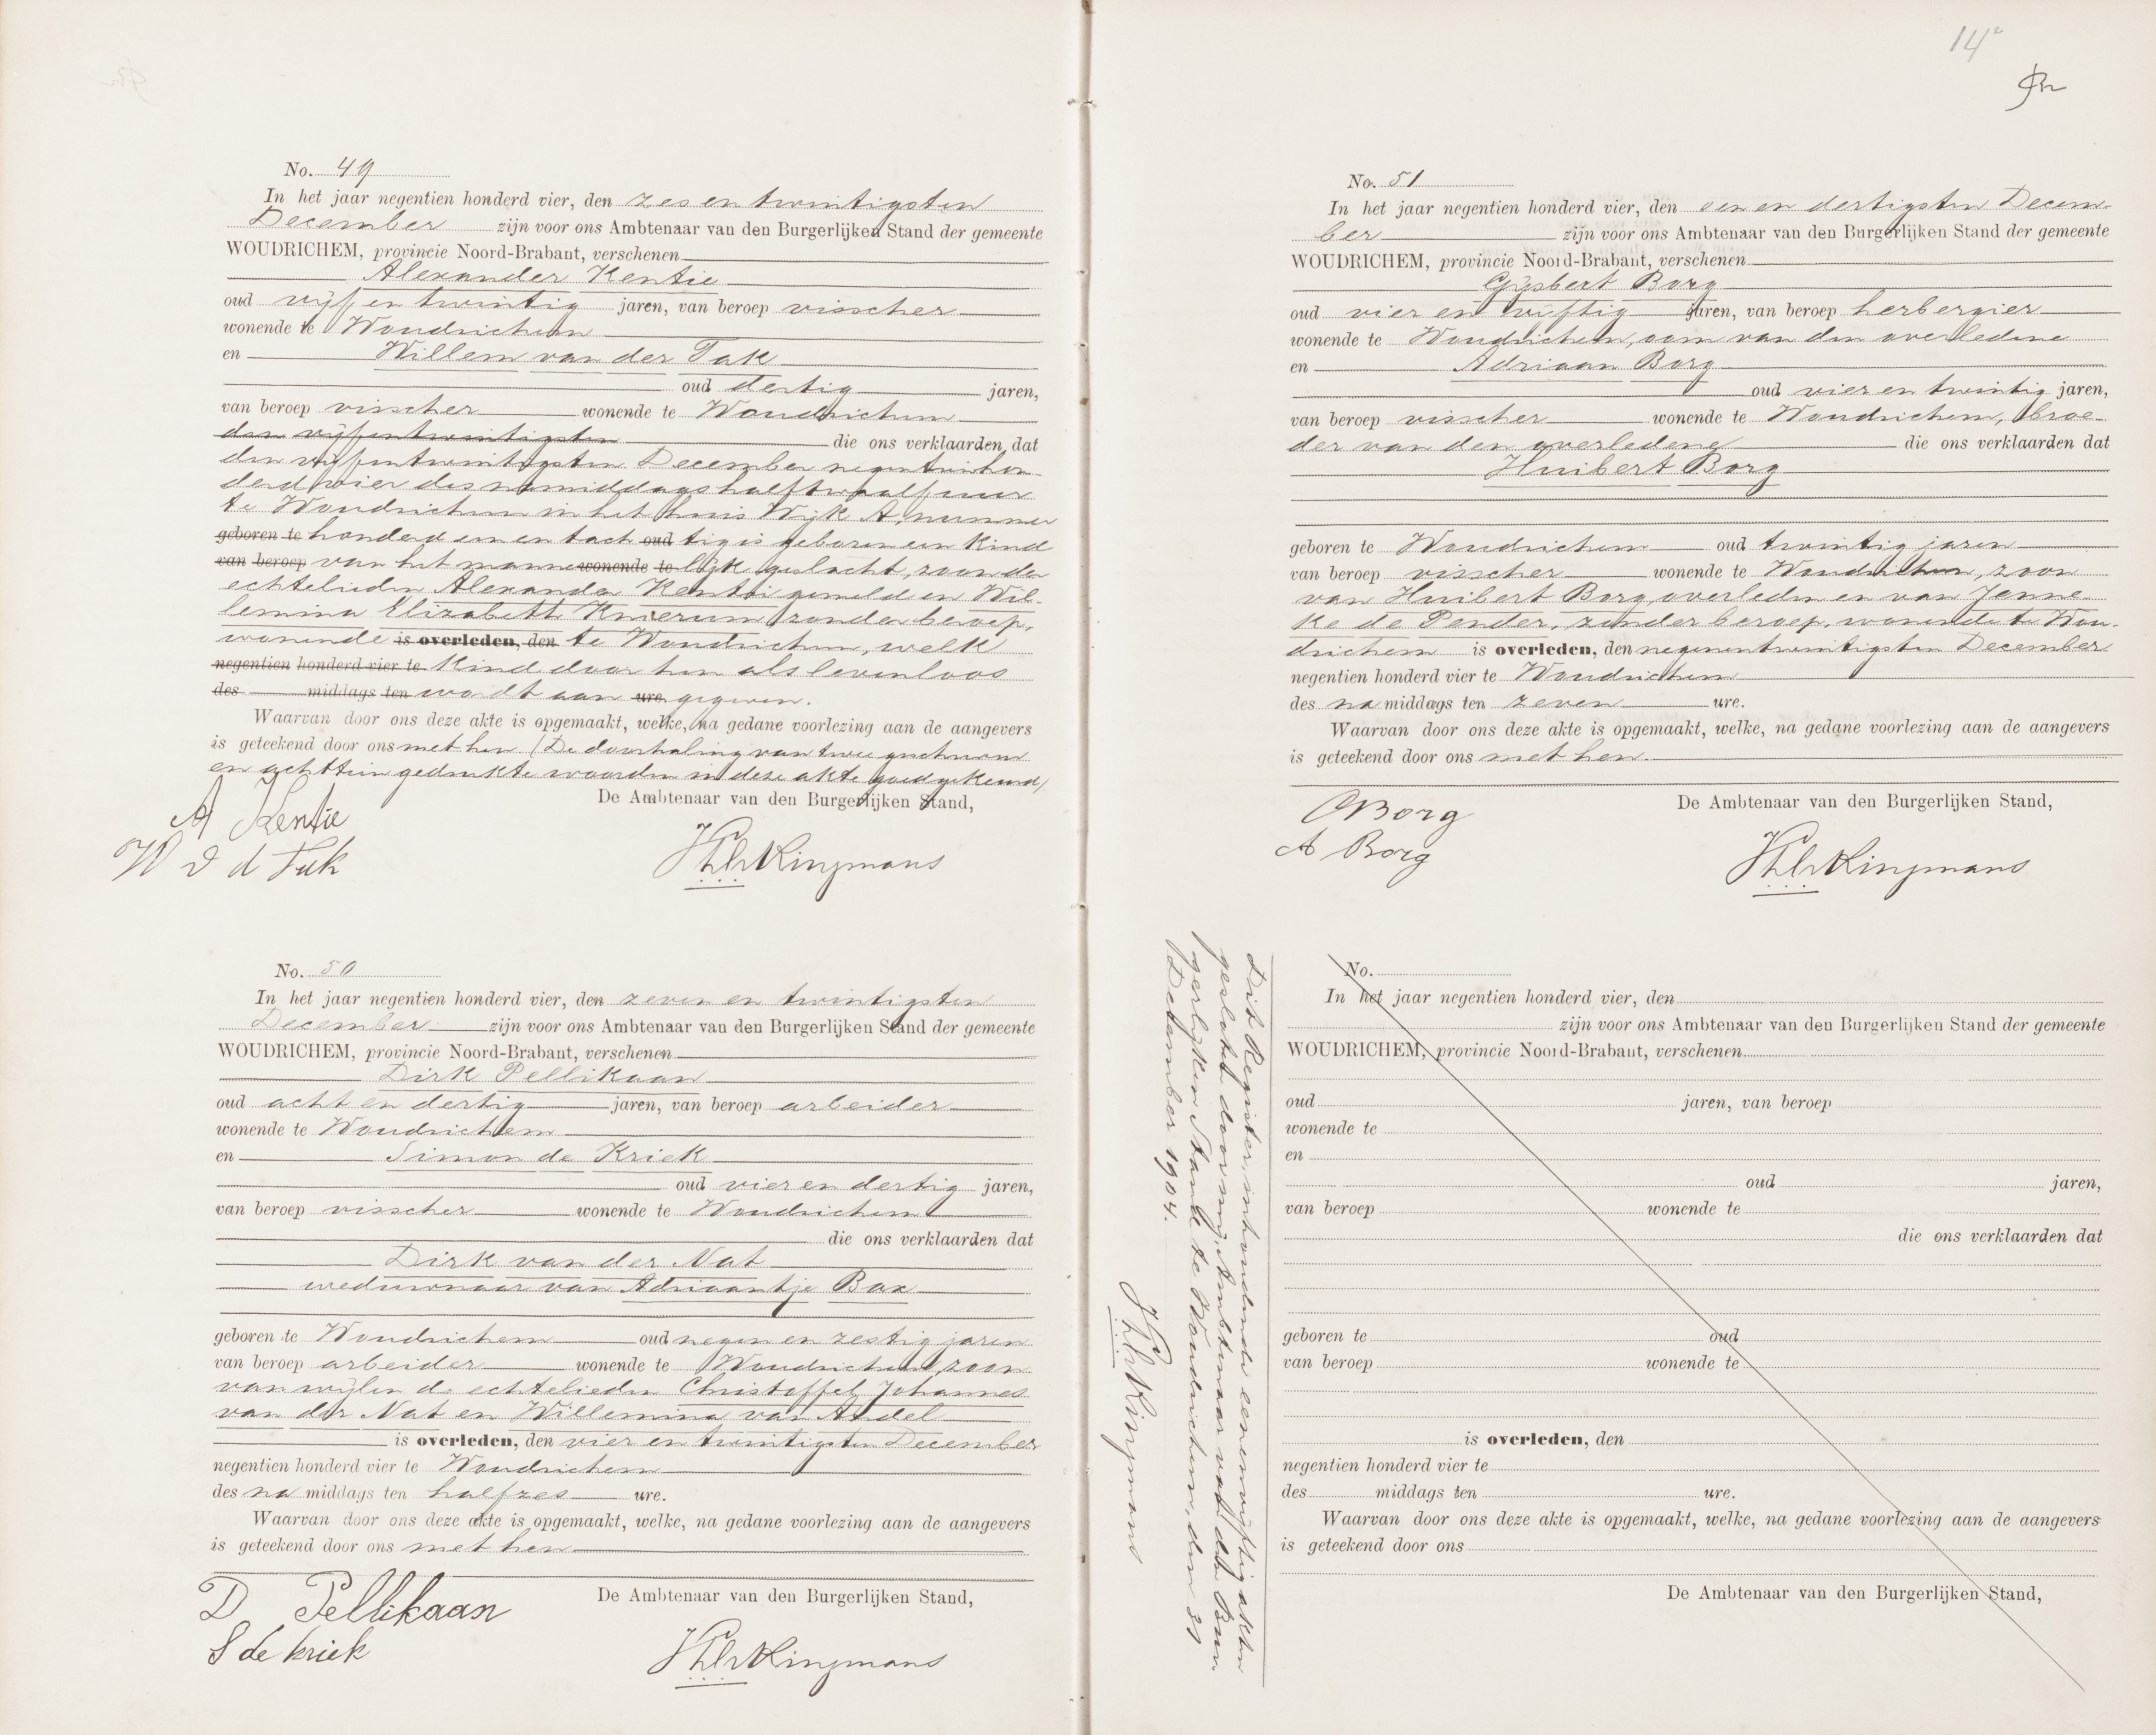 No. 49
In het jaar negentien honderd vier, den zes en twintigsten
December zijn voor ons Ambtenaar van den Burgerlijken Stand der gemeente
WOUDRICHEM, provincie Noord-Brabant, verschenen
Alexander Kentie
oud vijf en twintig jaren, van beroep visscher
wonende te Woudrichem
en Willem van der Tak
oud dertig jaren,
van beroep visscher wonende te Woudrichem
den vijfentwintigsten die ons verklaarden dat
den vijfentwintigsten December negentienhon-
derd vier des namiddags halftwaalf uur
te Woudrichem in het huis Wijk A, nummer
geboren te honderd een en tach oud tig is geboren een kind
van beroep van het manne wonende te lijk geslacht, zoon der
echtelieden Alexander Kentie gemeld en Wil-
lemina Elizabeth Knierum zonder beroep,
wonende is overleden, den te Woudrichem, welk
negentien honderd vier te kind door hen als levenloos
des middags ten wordt aan ure gegeven.
Waarvan door ons deze akte is opgemaakt, welke, na gedane voorlezing aan de aangevers
is geteekend door ons met hen (De doorhaling van twee geschreven
en achttien gedrukte woorden in deze akte goedgekeurd)
De Ambtenaar van den Burgerlijken Stand,
A Kentie
W v d Tak
Kingmans
No. 50
In het jaar negentien honderd vier, den zeven en twintigsten
December zijn voor ons Ambtenaar van den Burgerlijken Stand der gemeente
WOUDRICHEM, provincie Noord-Brabant, verschenen
Dirk Pellikaan
oud acht en dertig jaren, van beroep arbeider
wonende te Woudrichem
en Simon de Kriek
oud vier en dertig jaren,
van beroep visscher wonende te Woudrichem
die ons verklaarden dat
Dirk van der Nat
weduwnaar van Adriaantje Bax
geboren te Woudrichem oud negen en zestig jaren
van beroep arbeider wonende te Woudrichem, zoon
van wijlen de echtelieden Christoffel Johannes
van der Nat en Willemina van Andel
is overleden, den vier en twintigsten December
negentien honderd vier te Woudrichem
des na middags ten halfzes ure.
Waarvan door ons deze akte is opgemaakt, welke, na gedane voorlezing aan de aangevers
is geteekend door ons met hen
De Ambtenaar van den Burgerlijken Stand,
D Pellikaan
S de kriek
Kingmans
14
No. 51
In het jaar negentien honderd vier, den een en dertigsten Decem-
ber zijn voor ons Ambtenaar van den Burgerlijken Stand der gemeente
WOUDRICHEM, provincie Noord-Brabant, verschenen
Gijsbert Borg
oud vier en vijftig jaren, van beroep herbergier
wonende te Woudrichem, oom van den overledene
en Adriaan Borg
oud vier en twintig jaren,
van beroep visscher wonende te Woudrichem, broe-
der van den overledene die ons verklaarden dat
Huibert Borg
geboren te Woudrichem oud twintig jaren
van beroep visscher wonende te Woudrichem, zoon
van Huibert Borg, overleden en van Jenne-
ke de Pender, zonder beroep, wonende te Wou-
drichem is overleden, den negenentwintigsten December
negentien honderd vier te Woudrichem
des na middags ten zeven ure.
Waarvan door ons deze akte is opgemaakt, welke, na gedane voorlezing aan de aangevers
is geteekend door ons met hen.
De Ambtenaar van den Burgerlijken Stand,
Borg
A Borg
Kingmans
Dit Register, inhoudende een en vijftig akten
gesloten door mij, Ambtenaar van den Bur-
gerlijken Stand te Woudrichem, den 31
December 1904.
Kingmans
No.
In het jaar negentien honderd vier, den
zijn voor ons Ambtenaar van den Burgerlijken Stand der gemeente
WOUDRICHEM, provincie Noord-Brabant, verschenen
oud jaren, van beroep
wonende te
en
oud jaren,
van beroep wonende te
die ons verklaarden dat
geboren te oud
van beroep wonende te
is overleden, den
negentien honderd vier te
des middags ten ure.
Waarvan door ons deze akte is opgemaakt, welke, na gedane voorlezing aan de aangevers
is geteekend door ons
De Ambtenaar van den Burgerlijken Stand,